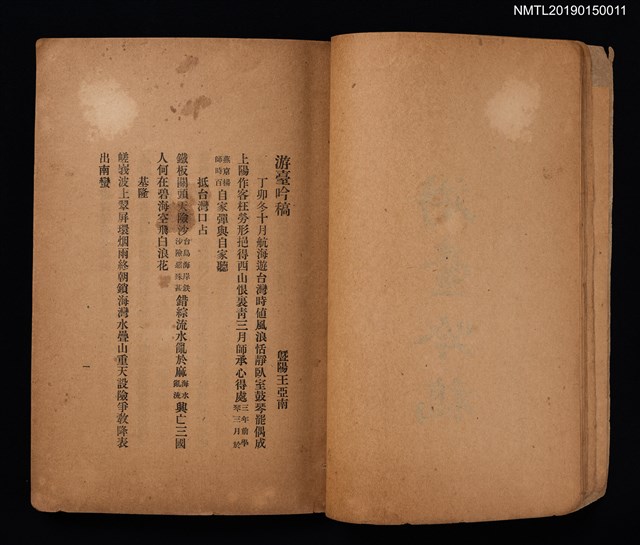 NMTL20190150011
游臺吟稿
暨陽王亞南
丁卯冬十月航海遊台灣時値風浪恬靜臥室鼓琴罷偶成
上陽作客枉勞形挹得西山恨裏靑三月師承心得處三年前學琴三月於
燕京楊師時百自家彈與自家聽
抵台灣口占
鐵板關頭天險沙台島海岸鐵沙險惡殊甚錯綜流水亂於麻海水亂流興亡三國
人何在碧海空飛白浪花
基隆
嵯峩波上翠屛環烟雨終朝鎖海灣水疊山重天設險爭敎降表
出南蠻
一